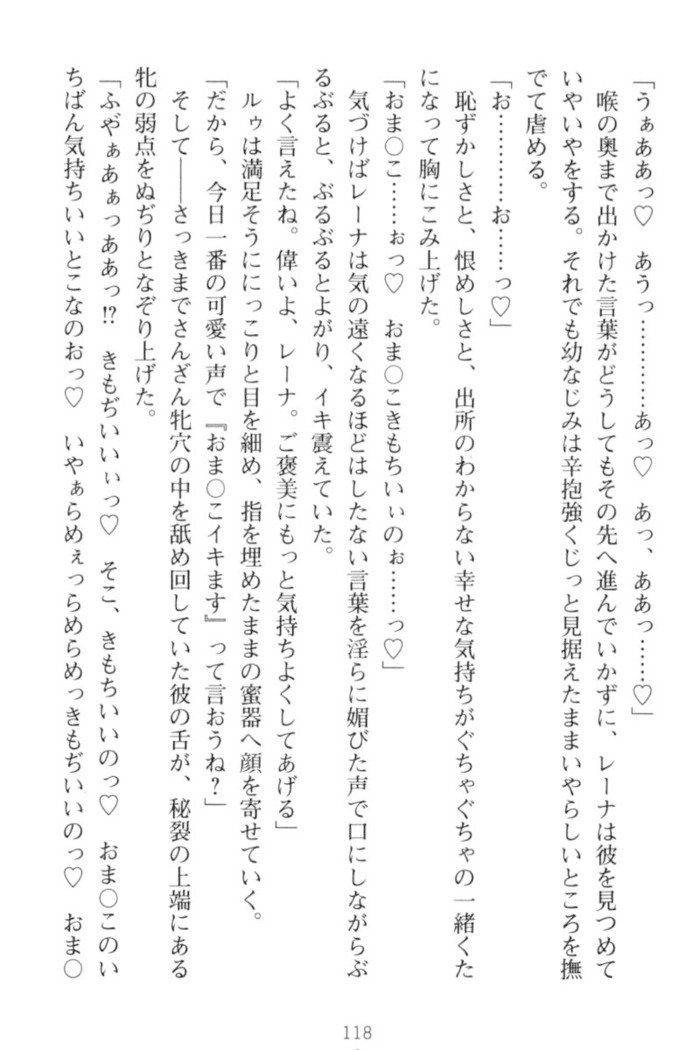 「うぁああっ♡　あうっ…………あっ♡　あっ、ああっ……♡」
　喉の奥まで出かけた言葉がどうしてもその先へ進んでいかずに、レーナは彼を見つめて
いやいやをする。それでも幼なじみは辛抱強くじっと見据えたままいやらしいところを撫
でて虐める。
「お…………お……っ♡」
　恥ずかしさと、恨めしさと、出所のわからない幸せな気持ちがぐちゃぐちゃの一緒くた
になって胸にこみ上げた。
「おま〇こ……ぉっ♡　おま〇こきもちいぃのぉ……っ♡」
　気づけばレーナは気の遠くなるほどはしたない言葉を淫らに媚びた声で口にしながらぶ
るぶると、ぶるぶるとよがり、イキ震えていた。
「よく言えたね。偉いよ、レーナ。ご褒美にもっと気持ちよくしてあげる」
　ルゥは満足そうににっこりと目を細め、指を埋めたままの蜜器へ顔を寄せていく。
「だから、今日一番の可愛い声で『おま〇こイキます』って言おうね？」
　そして――さっきまでさんざん牝穴の中を舐め回していた彼の舌が、秘裂の上端にある
牝の弱点をぬぢりとなぞり上げた。
「ふゃぁあぁっああっ!?　きもぢいいぃっ♡　そこ、きもちいいのっ♡　おま〇このい
ちばん気持ちいいとこなのおっ♡　いやぁらめぇっらめらめっきもぢいいのっ♡　おま〇
118